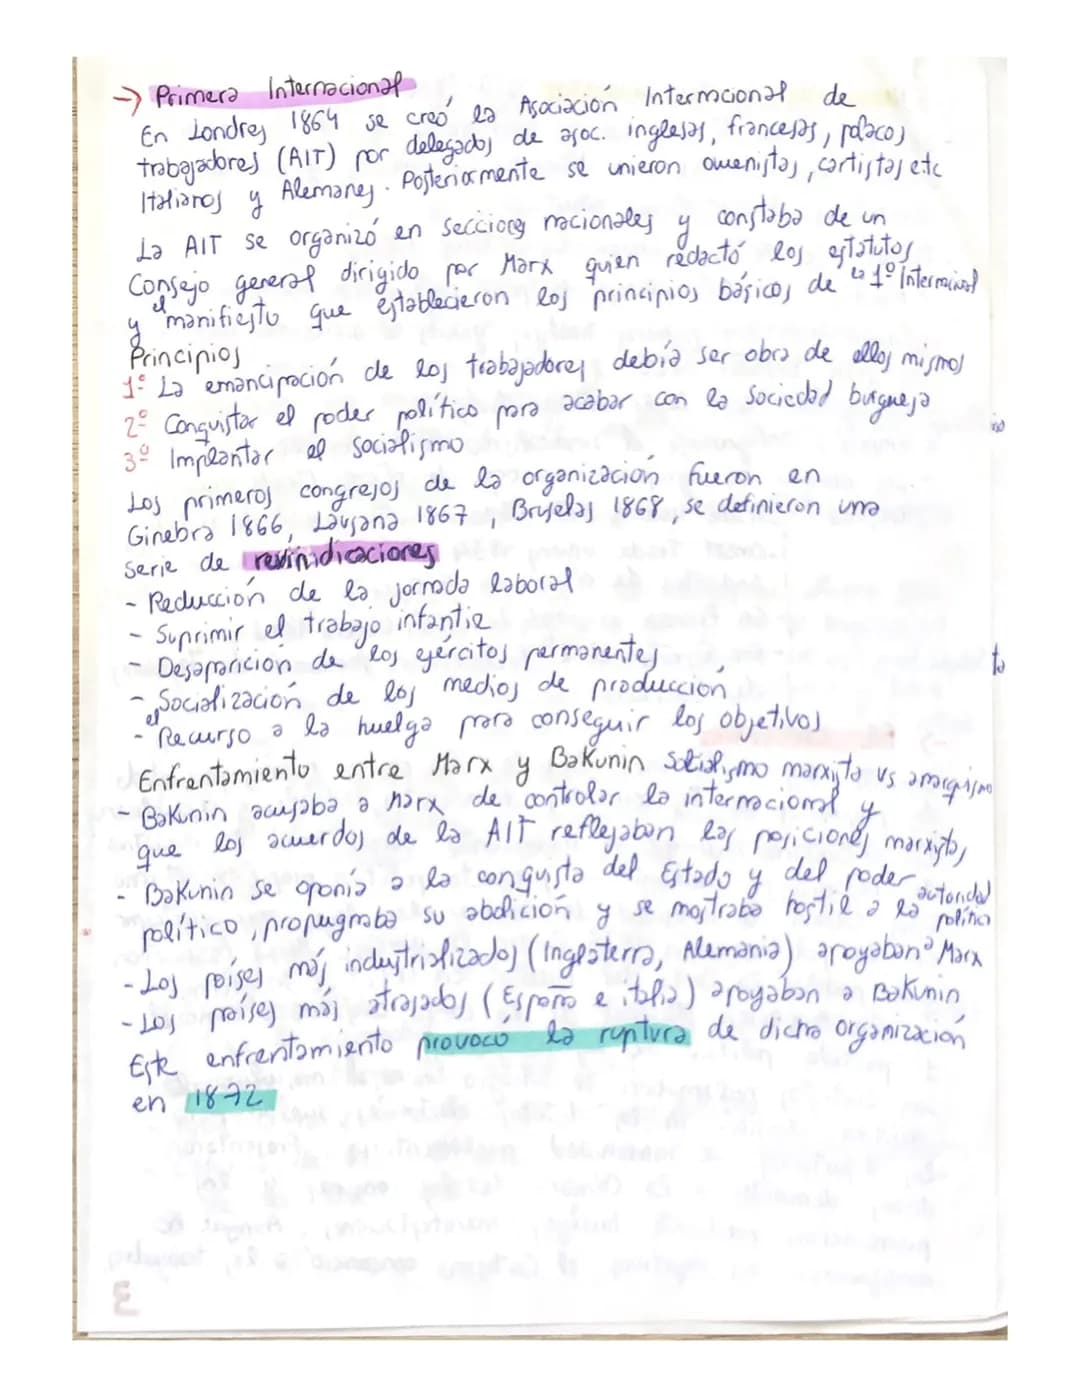 → Primera Internacional
En Londres 1864 se creó la Asociación Internacional de
trabajadores (AIT) por delegados de asoc. inglesas, francesas, polacos
Italianos y Alemanes. Posteriormente se unieron owenistas, cartistas etc
La AIT se organizó en secciones nacionales y constaba de un
Consejo general dirigido por Marx quien redactó los estatutos
y el manifiesto que establecieron los principios básicos de la 1º Internacional
Principios
1º La emancipación de los trabajadores debía ser obra de ellos mismos
2º Conquistar el poder político para acabar con la Sociedad burguesa
3º Implantar el socialismo
Los primeros congresos de la organización fueron en
Ginebra 1866, Lausana 1867, Bruselas 1868, se definieron una
serie de revinidicaciones
- Reducción de la jornada laboral
- Suprimir el trabajo infantil
- Desaparición de los ejércitos permanentes
- Socialización de los medios de producción
- el Recurso a la huelga para conseguir los objetivos
Enfrentamiento entre Marx y Bakunin Socialismo marxista vs anarquismo
- Bakunin acusaba a Marx de controlar la internacional y
que los acuerdos de la AIT reflejaban las posiciones marxistas
- Bakunin se oponía a la conquista del Estado y del poder
político, propugnaba su abolición y se mostraba hostil a la autoridad política
- Los países más industrializados (Inglaterra, Alemania) apoyaban a Marx
- Los países más atrasados (España e italia) apoyaban a Bakunin
Este enfrentamiento provocó la ruptura de dicha organización
en 1872
3